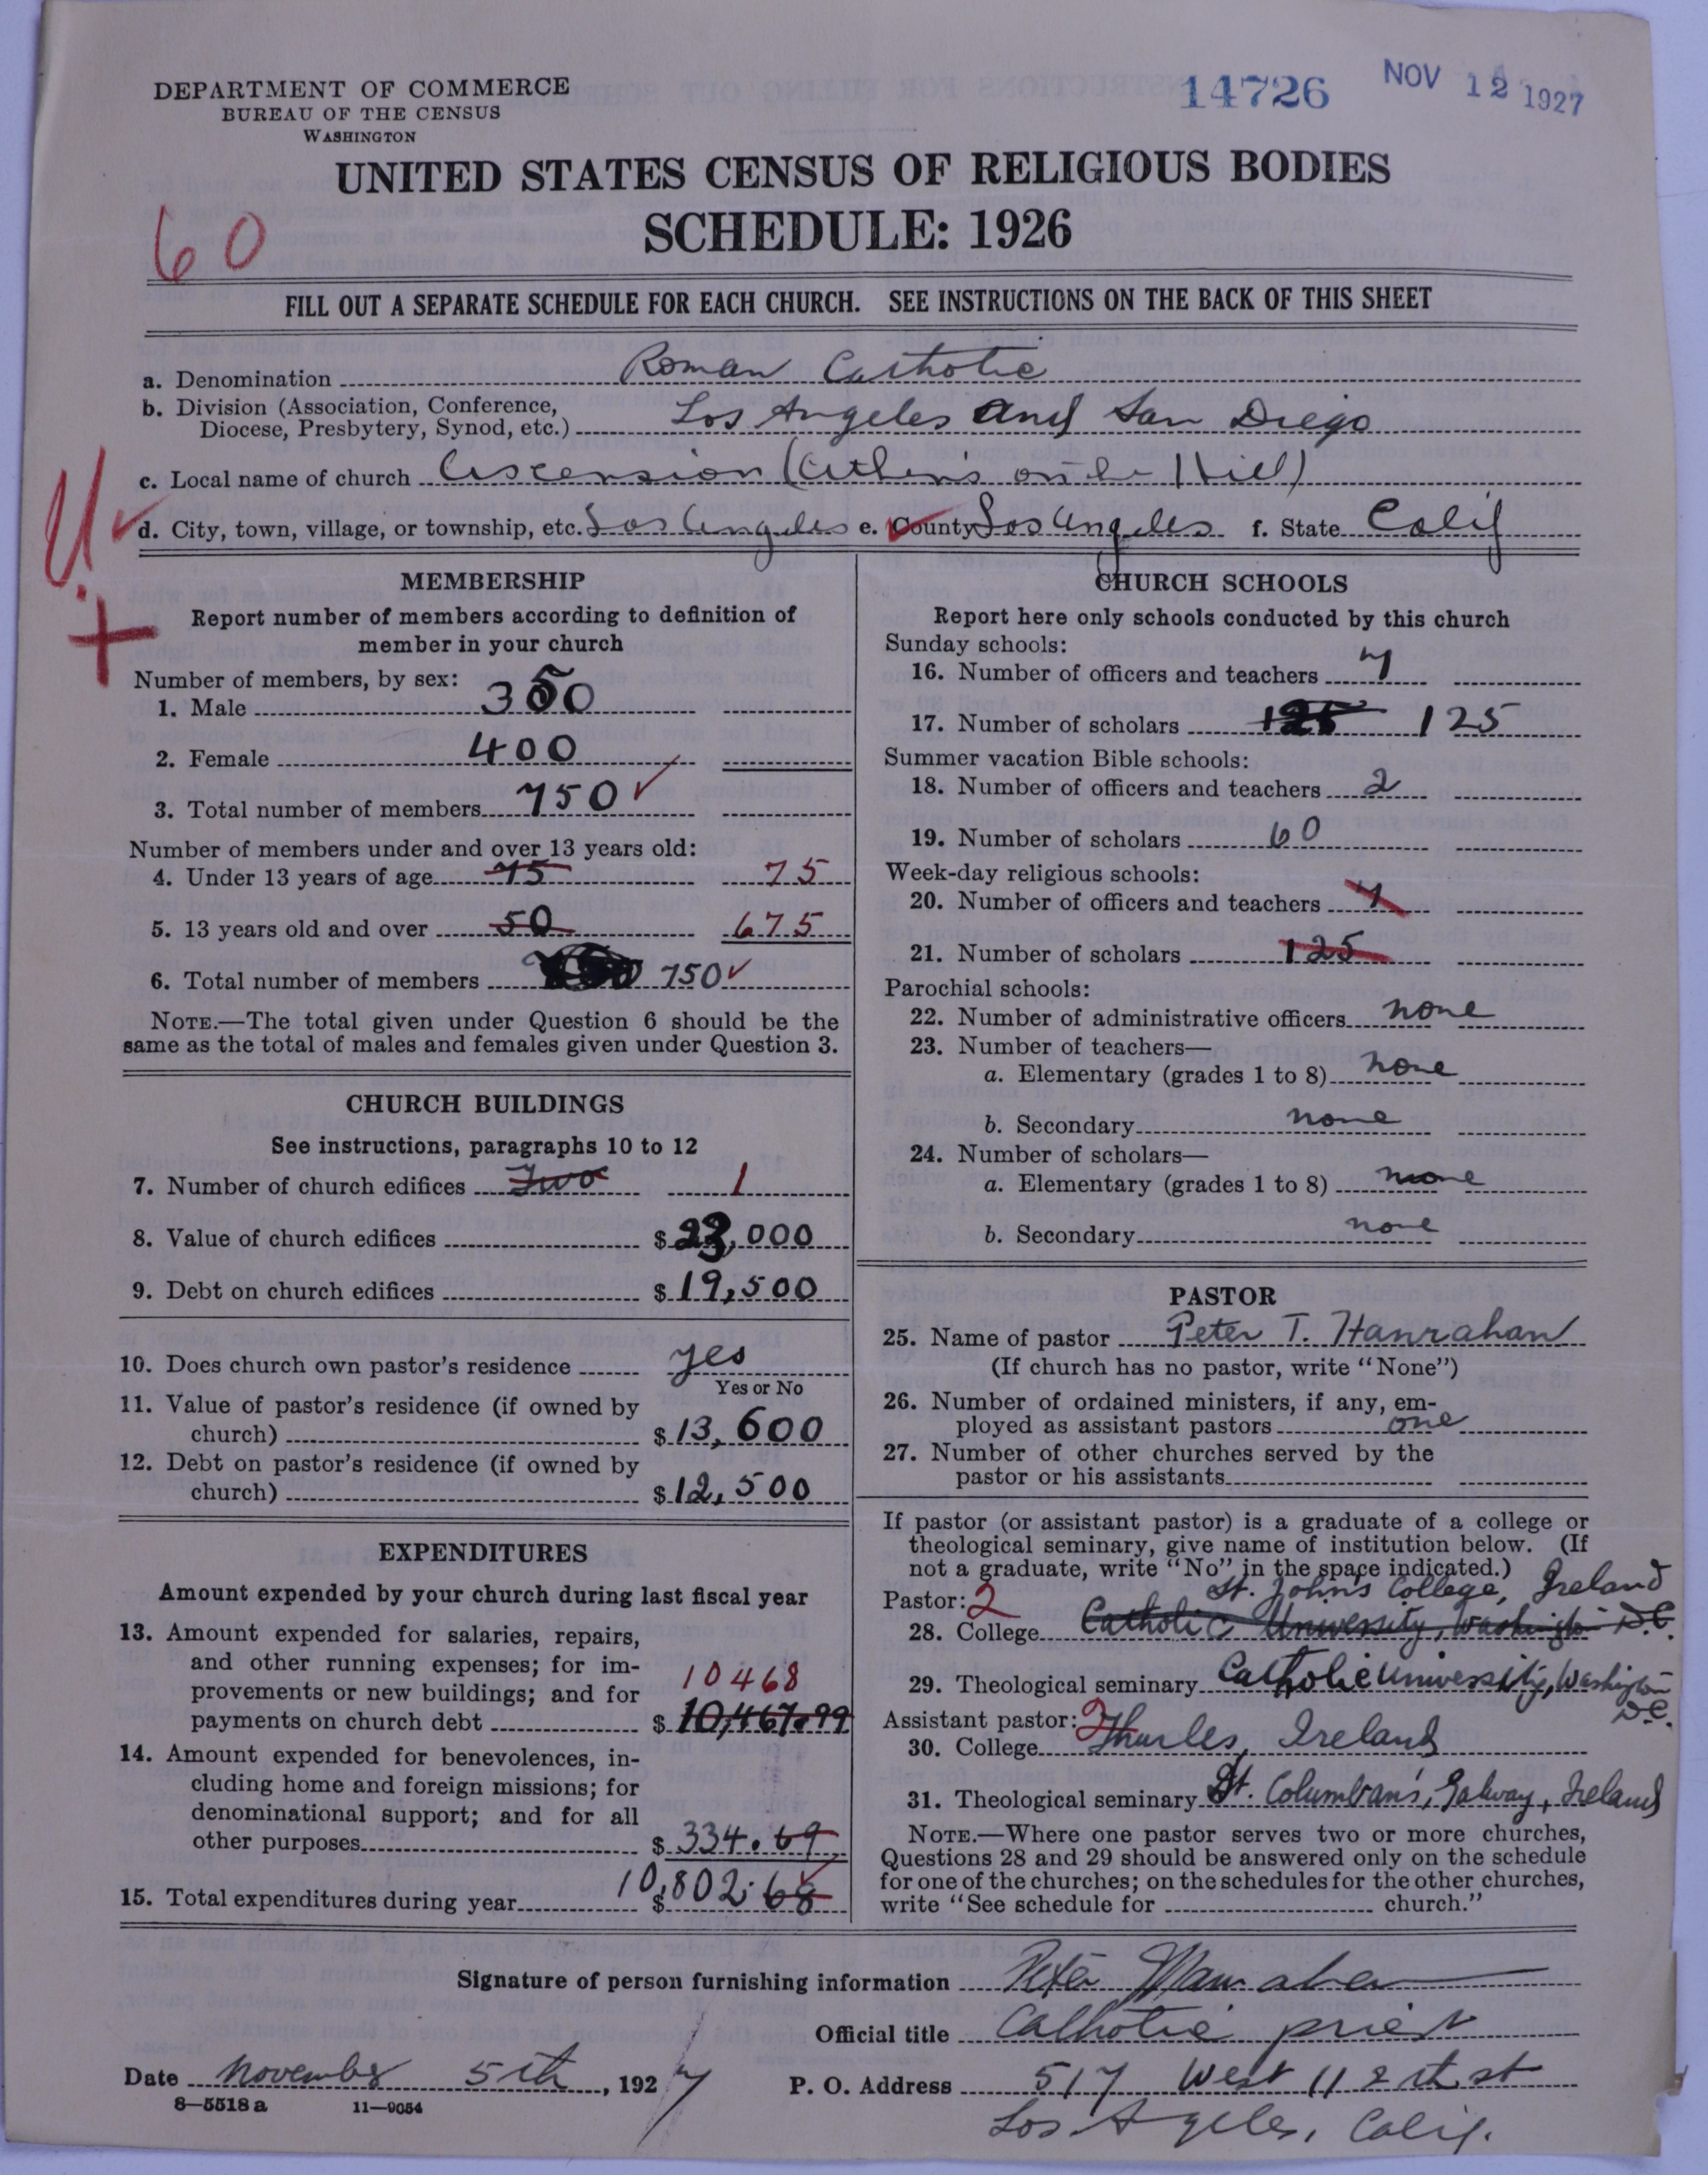 DEPARTMENT OF COMMERCE
BUREAU OF THE CENSUS
WASHINGTON
14726
NOV 12 1927
UNITED STATES CENSUS OF RELIGIOUS BODIES
SCHEDULE: 1926
60
FILL OUT A SEPARATE SCHEDULE FOR EACH CHURCH. SEE INSTRUCTIONS ON THE BACK OF THIS SHEET
a. Denomination Roman Catholic
b. Division (Association, Conference,
Diocese, Presbytery, Synod, etc.) Los Angeles and San Diego
c. Local name of church Ascension (Athens on the Hill)
U
d. City, town, village, or township, etc. Los Angeles e. County Los Angeles f. State Calif
+
MEMBERSHIP
Report number of members according to definition of
member in your church
Number of members, by sex:
1. Male 350
2. Female 400
3. Total number of members 750 ✓
Number of members under and over 13 years old:
4. Under 13 years of age 75 75
5. 13 years old and over 50 675
6. Total number of members 750 ✓
NOTE.—The total given under Question 6 should be the
same as the total of males and females given under Question 3.
CHURCH BUILDINGS
See instructions, paragraphs 10 to 12
7. Number of church edifices Two 1
8. Value of church edifices $ 23,000
9. Debt on church edifices $ 19,500
10. Does church own pastor's residence yes
Yes or No
11. Value of pastor's residence (if owned by
church) $ 13,600
12. Debt on pastor's residence (if owned by
church) $ 12,500
EXPENDITURES
Amount expended by your church during last fiscal year
13. Amount expended for salaries, repairs,
and other running expenses; for im-
provements or new buildings; and for 10468
payments on church debt $ 10,467.99
14. Amount expended for benevolences, in-
cluding home and foreign missions; for
denominational support; and for all
other purposes $ 334.69
15. Total expenditures during year $ 10,802.68
CHURCH SCHOOLS
Report here only schools conducted by this church
Sunday schools:
16. Number of officers and teachers 7
17. Number of scholars 125 125
Summer vacation Bible schools:
18. Number of officers and teachers 2
19. Number of scholars 60
Week-day religious schools:
20. Number of officers and teachers 7
21. Number of scholars 125
Parochial schools:
22. Number of administrative officers none
23. Number of teachers—
a. Elementary (grades 1 to 8) none
b. Secondary none
24. Number of scholars—
a. Elementary (grades 1 to 8) none
b. Secondary none
PASTOR
25. Name of pastor Peter T. Hanrahan
(If church has no pastor, write "None")
26. Number of ordained ministers, if any, em-
ployed as assistant pastors one
27. Number of other churches served by the
pastor or his assistants
If pastor (or assistant pastor) is a graduate of a college or
theological seminary, give name of institution below. (If
not a graduate, write "No" in the space indicated.)
Pastor: 2 St. John's College, Ireland
28. College Catholic University, Washington D.C.
29. Theological seminary Catholic University, Washington
D.C.
Assistant pastor: 2
30. College Thurles, Ireland
31. Theological seminary St. Columban's, Galway, Ireland
NOTE.—Where one pastor serves two or more churches,
Questions 28 and 29 should be answered only on the schedule
for one of the churches; on the schedules for the other churches,
write "See schedule for church."
Signature of person furnishing information Peter Hanrahan
Official title Catholic priest
Date November 5th, 1927
P. O. Address 517 West 112th st
Los Angeles, Calif.
8—5518 a 11—9054